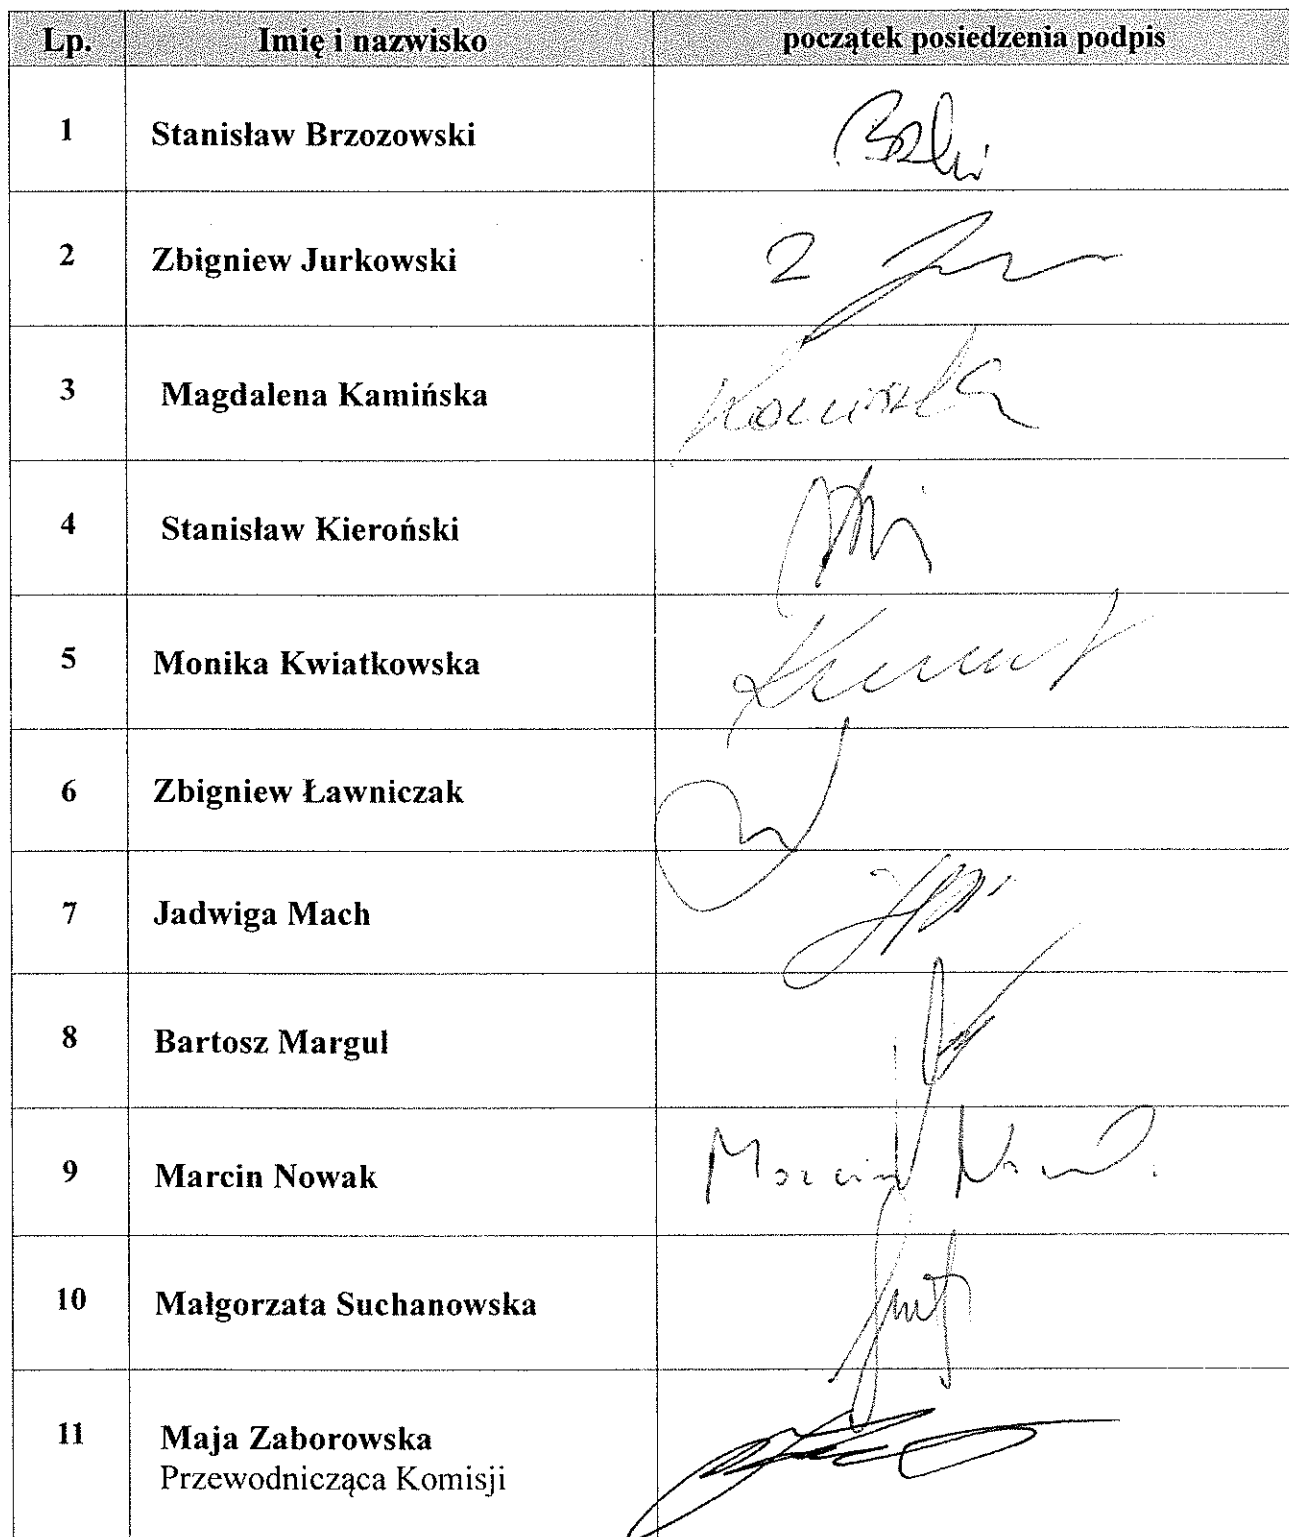 Lp. Imię i nazwisko początek posiedzenia podpis
1 Stanisław Brzozowski
2 Zbigniew Jurkowski
3 Magdalena Kamińska
4 Stanisław Kieroński
5 Monika Kwiatkowska
6 Zbigniew Ławniczak
7 Jadwiga Mach
8 Bartosz Margul
9 Marcin Nowak Marcin Nowak
10 Małgorzata Suchanowska
11 Maja Zaborowska
Przewodnicząca Komisji